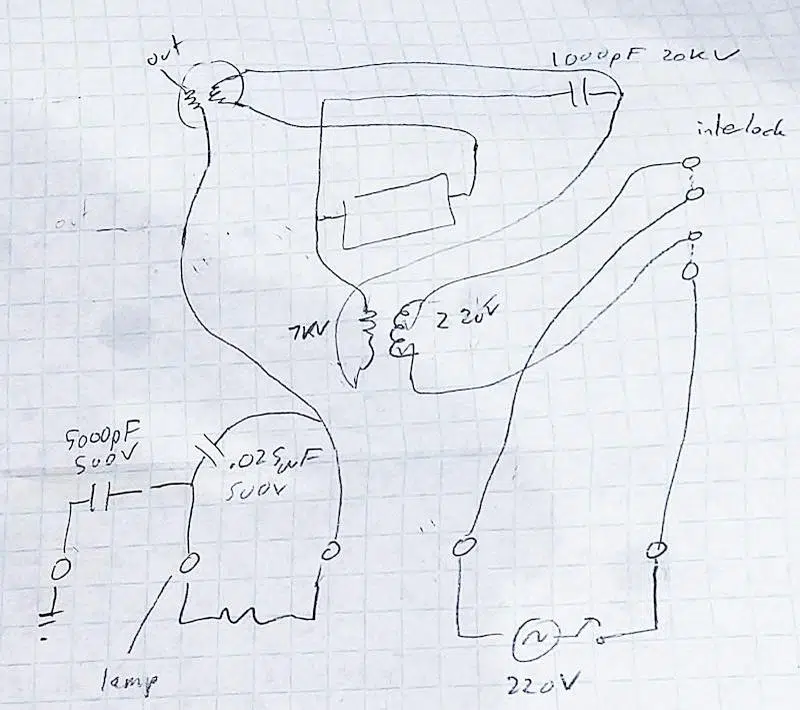 out
1000pF 20KV
interlock
out
7KV
220V
5000pF
500V
.025µF
500V
lamp
220V